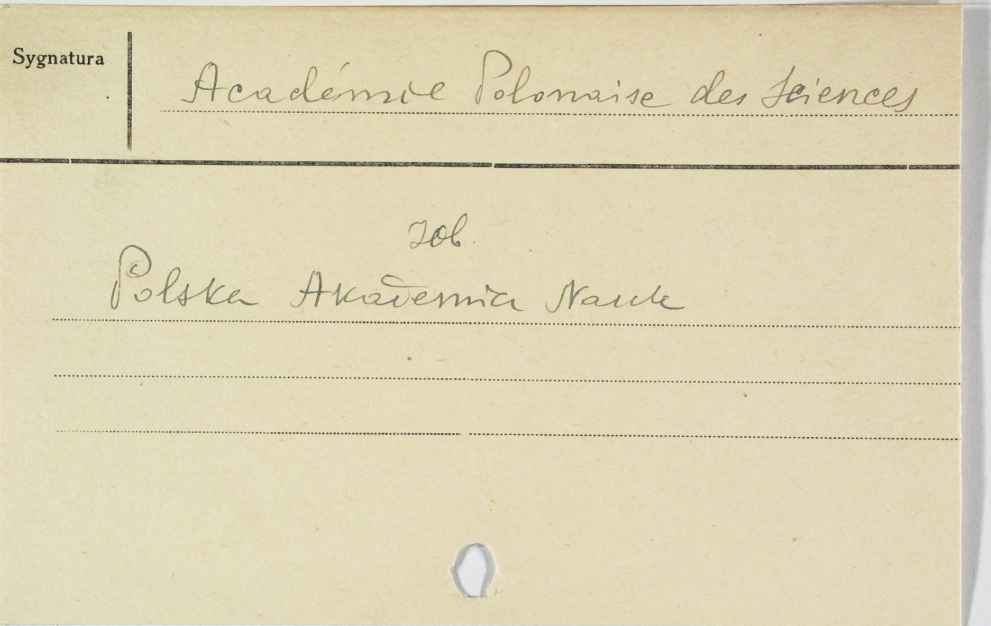 Sygnatura
Académie Polonaise des Sciences
zob.
Polska Akademia Nauk